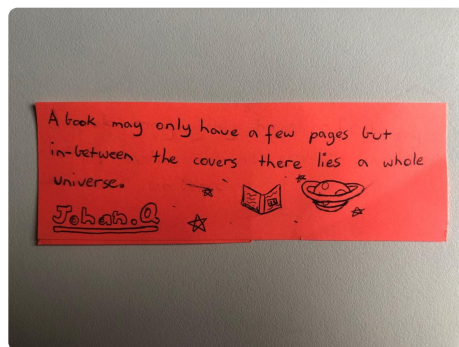 A book may only have a few pages but
in-between the covers there lies a whole
universe.
Johan.Q